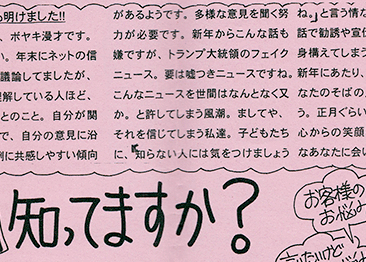 明けました!!
、ボヤキ漫才です。
。年末にネットの信
議論してましたが、
理解している人ほど、
とのこと。自分が関
で、自分の意見に沿
例に共感しやすい傾向
があるようです。多様な意見を聞く努
力が必要です。新年からこんな話も
嫌ですが、トランプ大統領のフェイク
ニュース。要は嘘つきニュースですね。
こんなニュースを世間はなんとなく又
か。と許してしまう風潮。ましてや、
それを信じてしまう私達。子どもたち
に、「知らない人には気をつけましょう
ね。」と言う情な
話で勧誘や宣伝
身構えてしまう
新年にあたり、
なたのそばの
う。正月ぐらい
心からの笑顔
あなたに会い
知ってますか?
お客様の
お悩み
言いたいけど